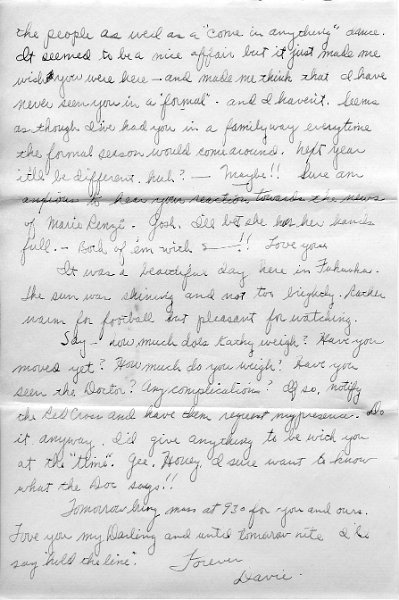 the people as well as a "come in anything" dance.
It seemed to be a nice affair but it just made me
wish you were here - and made me think that I have
never seen you in a "formal". and I haven't. Seems
as though I've had you in a family way everytime
the formal season would come around. Next year
it'll be different, huh? - Maybe!! Sure am
anxious to hear your reaction towards the news
of Marie Renzi. Gosh, I'll bet she has her hands
full. - Both of 'em with 2 - !! Love you
It was a beautiful day here in Fukuoka.
The sun was shining and not too brightly. Rather
warm for football but pleasant for watching.
Say - how much does Kathy weigh? Have you
moved yet? How much do you weigh? Have you
seen the Doctor? Any complications? If so, notify
the Red Cross and have them request my presence. Do
it anyway. I'd give anything to be with you
at the "time". Gee, Honey, I sure want to know
what the Doc says!!
Tomorrow being mass at 930 for you and ours.
Love you my Darling and until tomorrow nite I'll
say "hold the line".
Forever
Davie